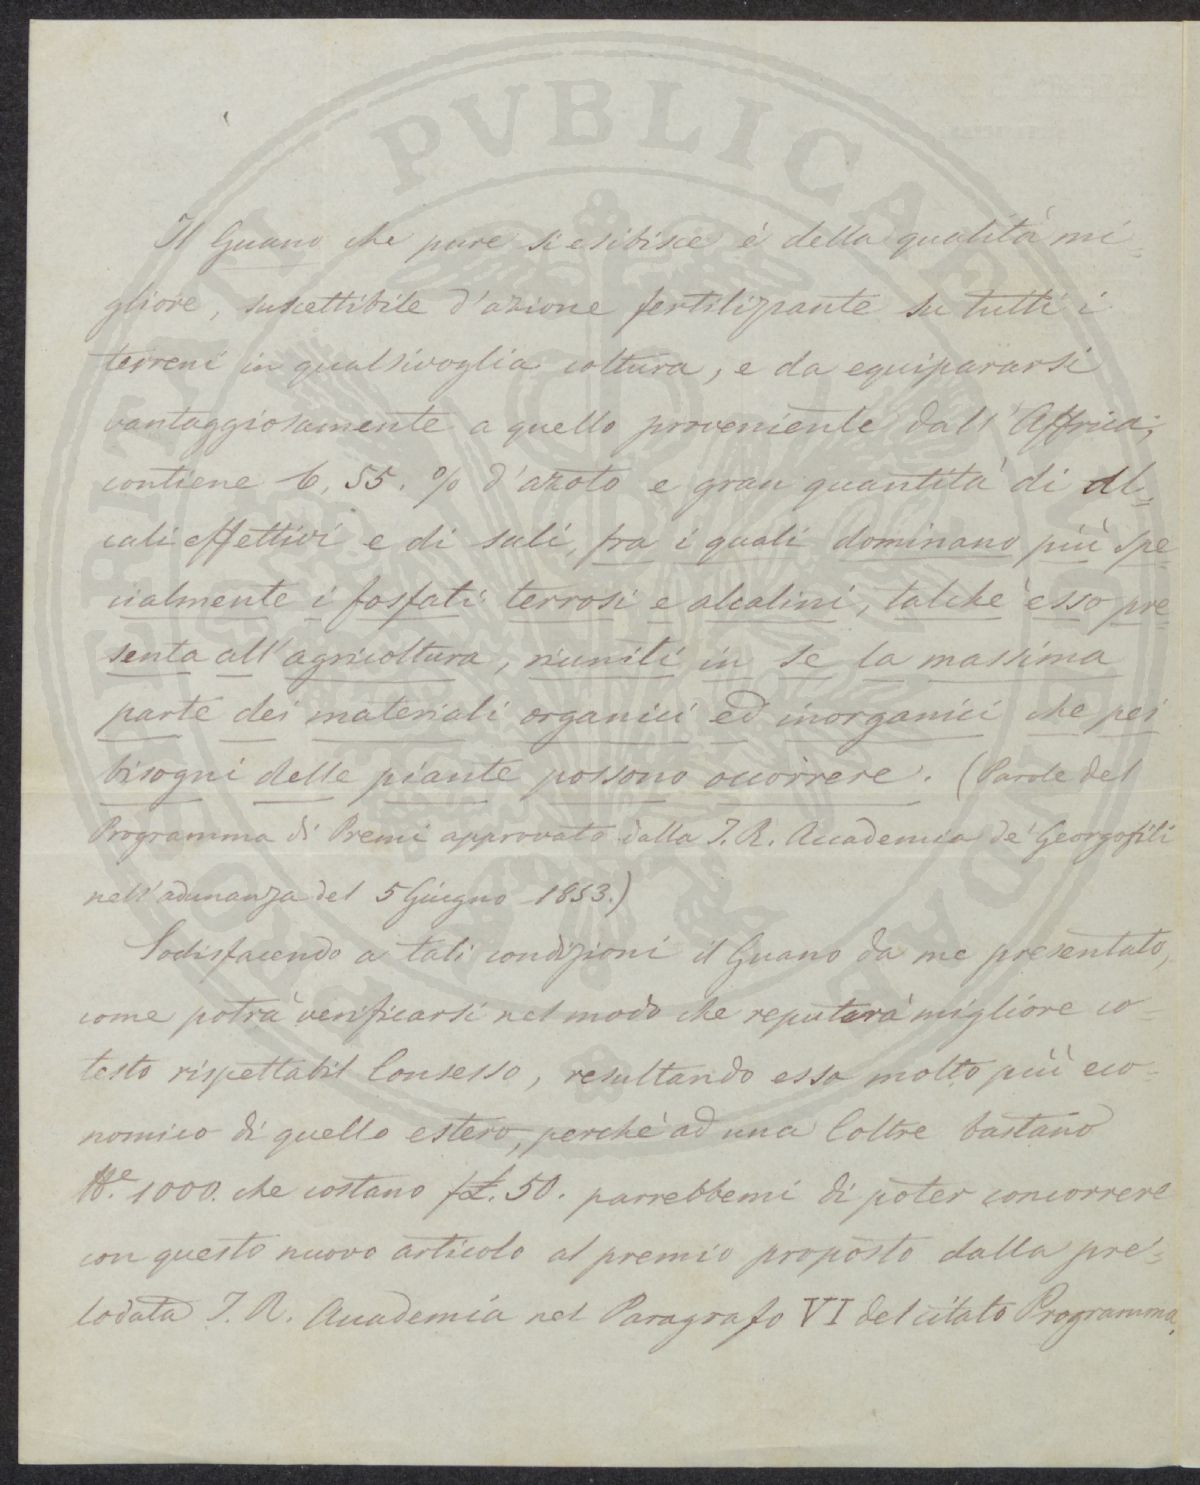 Il Guano che pure si esibisce è della qualità mi-
gliore, suscettibile d'azione fertilizzante su tutti i
terreni in qualsivoglia coltura, e da equipararsi
vantaggiosamente a quello proveniente dall'Affrica;
contiene 6,55.% d'azoto e gran quantità di al-
cali effettivi e di sali, fra i quali dominano più spe-
cialmente i fosfati terrosi e alcalini, talchè esso pre
senta all'agricoltura, riuniti in se la massima
parte dei materiali organici ed inorganici che pei
bisogni delle piante possono occorrere. (Parole del
Programma di Premi approvato dalla I. R. Accademia de' Georgofili
nell'adunanza del 5 Giugno 1853.)
Sodisfacendo a tali condizioni il Guano da me presentato,
come potrà verificarsi nel modo che reputerà migliore co-
testo rispettabil Consesso, resultando esso molto più eco-
nomico di quello estero, perchè ad una Coltre bastano
1000. che costano £. 50. parrebbemi di poter concorrere
con questo nuovo articolo al premio proposto dalla pre-
lodata I. R. Accademia nel Paragrafo VI del citato Programma.